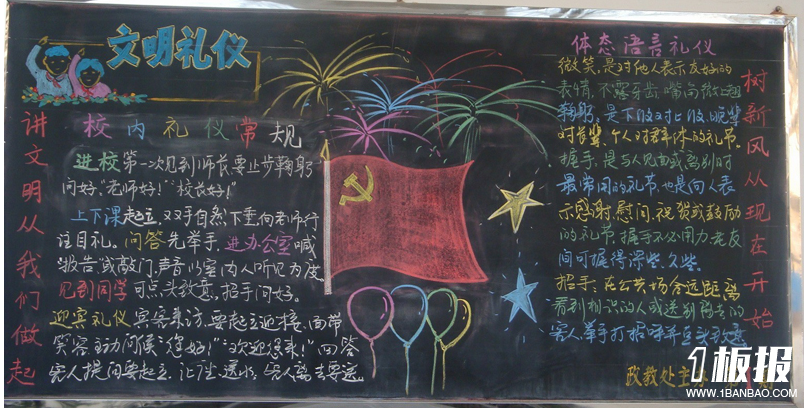 文明礼仪
讲文明从我们做起
校内礼仪常规
进校第一次见到师长要止步鞠躬
问好"老师好!""校长好!"
上下课起立,双手自然下垂,向老师行
注目礼。问答先举手,进办公室喊
"报告"或敲门,声音以室内人听见为度。
见到同学可点头致意,招手问好。
迎宾礼仪 宾客来访,要起立迎接,面带
笑容主动问候"您好!""欢迎您来!"回答
客人提问要起立、让座、送水,客人离去要送。
体态语言礼仪
微笑,是对他人表示友好的
表情,不露牙齿,嘴角微上翘
鞠躬,是下级对上级、晚辈
对长辈、个人对群体的礼节。
握手,是与人见面或离别时
最常用的礼节,也是向人表
示感谢、慰问、祝贺或鼓励
的礼节,握手不必用力,老友
间可握得深些、久些。
招手:在公共场合远距离
看到相识的人或送别离去的
客人,举手打招呼并点头致意
树新风从现在开始
政教处主办
1板报
WWW.1BANBAO.COM